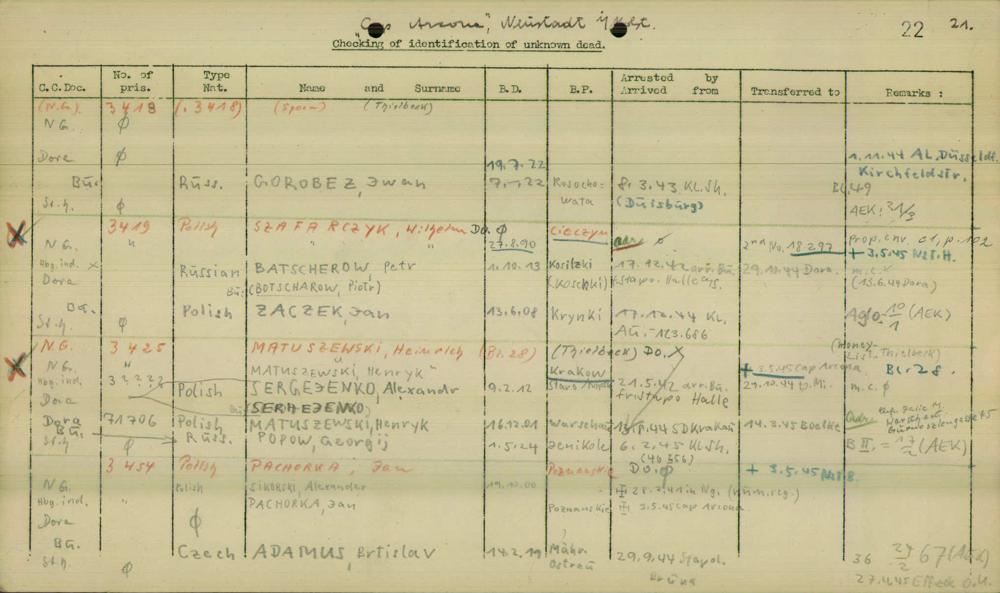 "Cap Arcona", Neustadt i/Holst.
22 21.
Checking of identification of unknown dead.
C.C.Doc. No. of pris. Type Nat. Name and Surname B.D. B.P. Arrested by Arrived from Transferred to Remarks :
(N.G.) 3418 (.3418) (Speem) (Thielbeck)
N.G. φ
Dora φ 19.7.22 1.11.44 AL. Düsseldf.
Kirchfeldstr.
Bu. Russ. GOROBEZ, Iwan 7.1.22 Rosocho-wata 8.3.43 KL.Sh. Bl.49
St.h. φ (Duisburg) AEK: 21/3
3419 Polish SZAFARCZYK, Wilhelm Do. φ Cieczyn Prop. env. c1, p.102
N.G. " " " 27.8.90 2nd No. 18.297 + 3.5.45 Nst.H.
Abg.ind. x Russian BATSCHEROW, Petr 1.10.13 Kositzki 17.12.42 arr. Bu. 29.10.44 Dora. m.c. x
Dora Bu: (BOTSCHAROW, Piotr) (Koschki) f.Stapo. Halle (13.6.44 Dora)
Bu. Polish ZACZEK, Jan 13.6.08 Krynki 17.12.44 KL. 10/1 (AEK)
St.h. φ Au. -123.686
N.G. 3425 MATUSZEWSKI, Heinrich (Bl.28) (Thielbeck) Do. x (Money-List. Thielbeck)
N.G. " MATUSZEWSKI, Henryk Krakow + 3.5.45 Cap Arcona Bl. 28.
Abg.ind. Polish SERGEJENKO, Alexandr 9.2.12 21.5.42 arr. Bu. 29.10.44 m.c. φ
Dora (SERHEJENKO) fr. Stapo Halle
Dora 71706 Polish MATUSZEWSKI, Henryk 16.12.01 Warschau 13.8.44 SD Krakau 14.3.45 Boelke
Bu. Russ. POPOW, Georgij 1.5.24 Jenikole 6.2.45 KL.Sh. B II. = 17/2 (AEK)
St.h φ (40356)
3454 Polish PACHORKA, Jan Poznanskie Do. φ + 3.5.45 Nst.B.
N.G. Polish SIKORSKI, Alexander 19.10.00 28.2.41 in Ng. (num.reg.)
Abg.ind. " PACHORKA, Jan Poznanskie 3.5.45 Cap Arcona
Dora φ
Bu. Czech ADAMUS, Brtislav 14.2.19 Mähr. Ostrau 29.9.44 Stapol. Brünn 36 67 (AEK)
St.h. φ 27.4.45